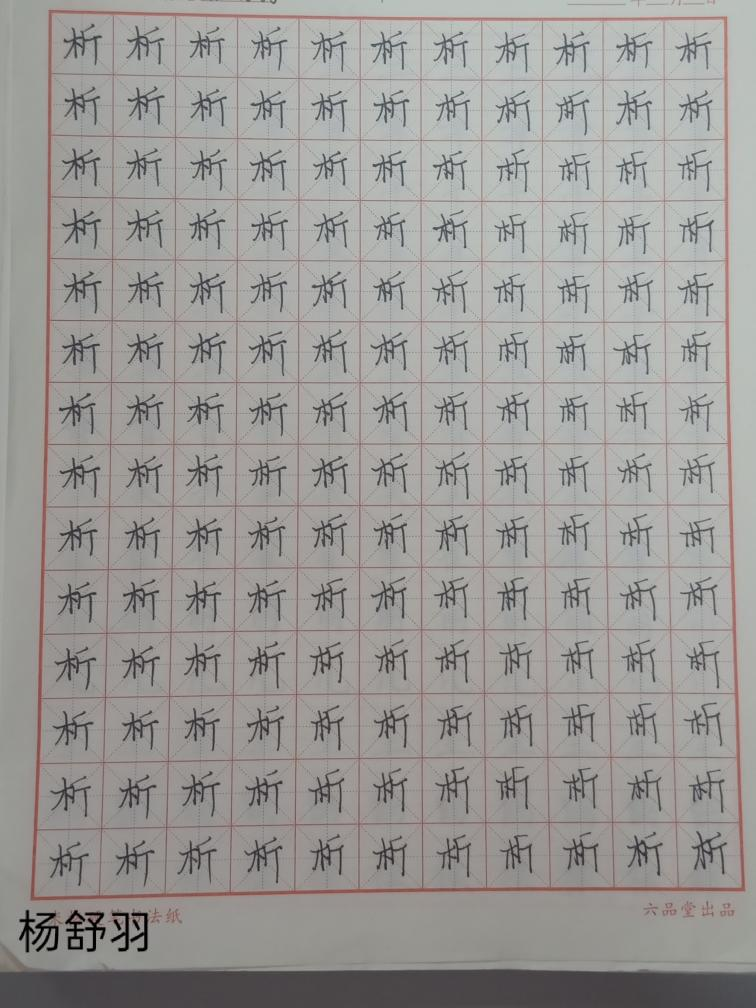 年 月 日
析 析 析 析 析 析 析 析 析 析 析
析 析 析 析 析 析 析 析 析 析 析
析 析 析 析 析 析 析 析 析 析 析
析 析 析 析 析 析 析 析 析 析 析
析 析 析 析 析 析 析 析 析 析 析
析 析 析 析 析 析 析 析 析 析 析
析 析 析 析 析 析 析 析 析 析 析
析 析 析 析 析 析 析 析 析 析 析
析 析 析 析 析 析 析 析 析 析 析
析 析 析 析 析 析 析 析 析 析 析
析 析 析 析 析 析 析 析 析 析 析
析 析 析 析 析 析 析 析 析 析 析
析 析 析 析 析 析 析 析 析 析 析
析 析 析 析 析 析 析 析 析 析 析
法纸 六品堂出品
杨舒羽